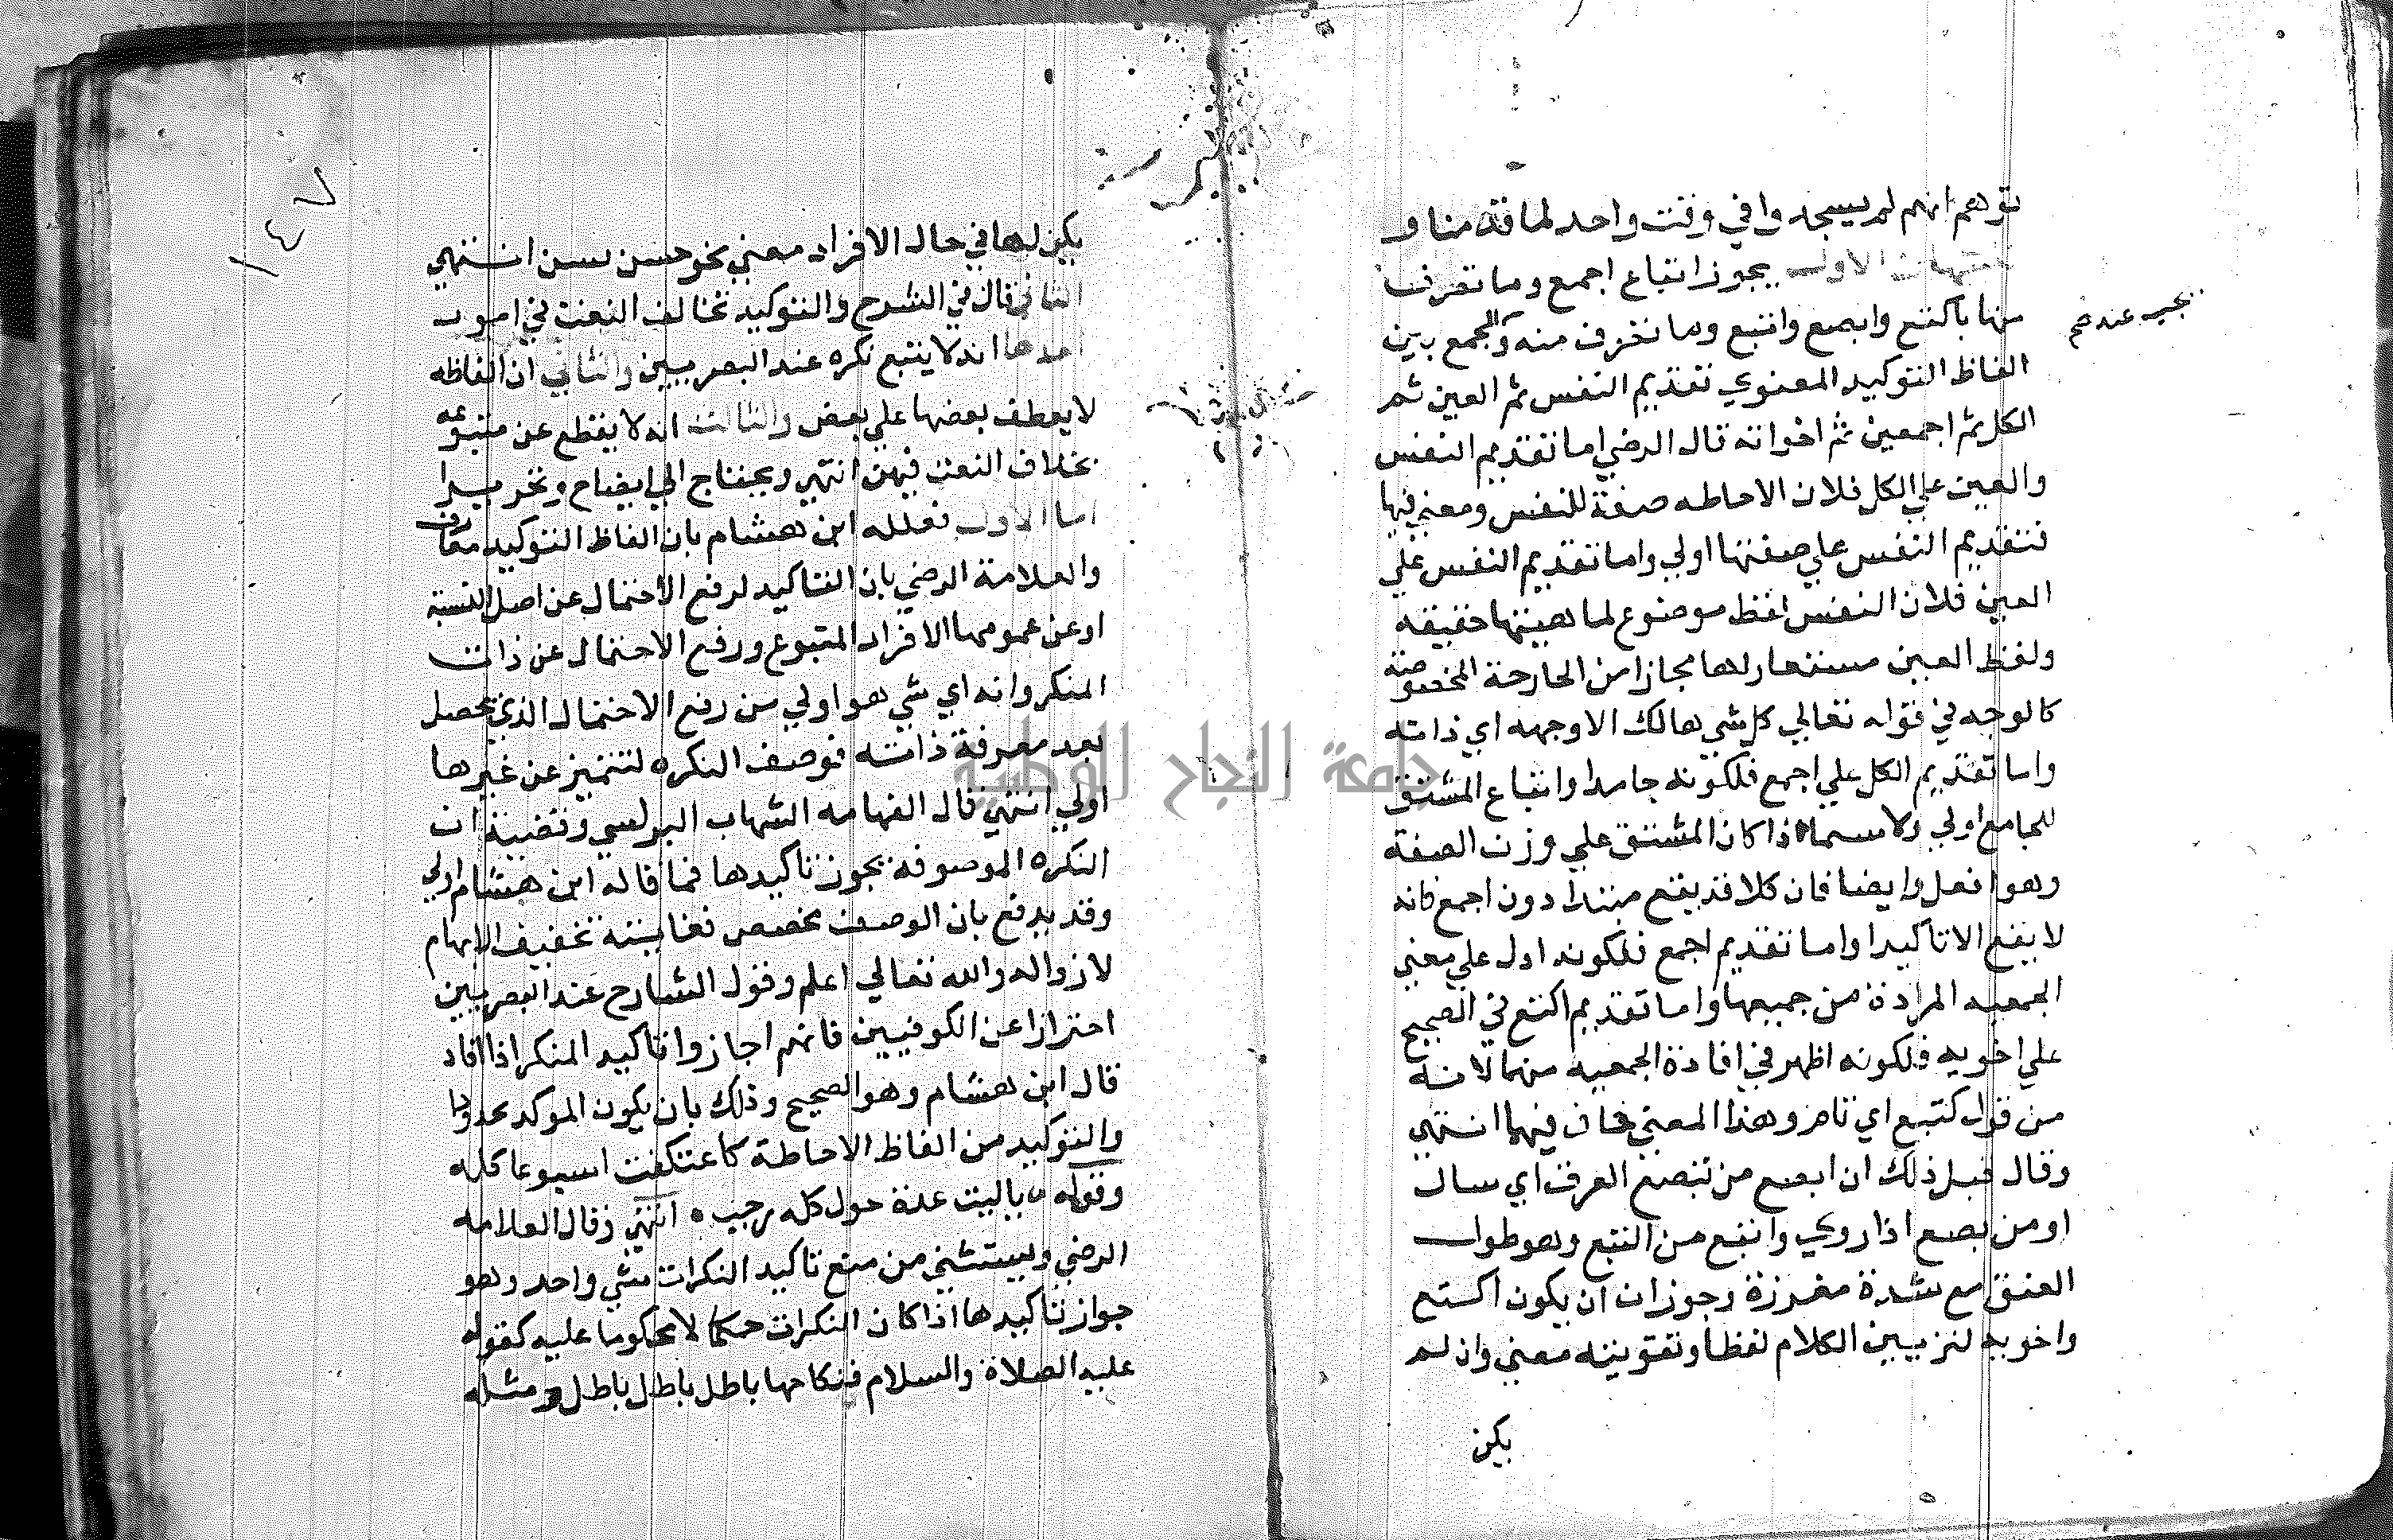 توهم انهم لم يسجدوا في وقت واحد لما قدمناه
تنبيهات الاول يجوز اتباع اجمع وما تصرف
منها باكتع وابصع وابتع وما تصرف منه والجمع بين
يجب عندهم
الفاظ التوكيد المعنوي تقديم النفس ثم العين ثم
الكل ثم اجمعين ثم اخواته قال الرضي اما تقديم النفس
والعين علي الكل فلان الاحاطه صفة للنفس ومعني فيها
فتقديم النفس علي صفتها اولي واما تقديم النفس علي
العين فلان النفس لفظ موضوع لماهيتها حقيقه
ولفظ العين مستعار لها مجازا من الجارحة المخصوصة
كالوجه في قوله تعالي كل شي هالك الا وجهه اي ذاته
واما تقديم الكل علي اجمع فلكونه جامدا واتباع المشتق
للجامع اولي ولاسيما اذا كان المشتق علي وزن الصفة
وهو افعل وايضا فان كلا قد يقع مبتدا دون اجمع فانه
لا يقع الا تاكيدا واما تقديم اجمع فلكونه ادل علي معني
الجمعيه المرادة من جميعها واما تقديم اكتع في الصحيح
علي اخويه فلكونه اظهر في افادة الجمعيه منهما لانه
من قول كتيع اي تام وهذا المعني خاف فيهما انتهي
وقال قبل ذلك ان ابصع من تبصع العرق اي سال
او من بصع اذا روي وابتع من البتع وهو طول
العنق مع شدة مغرزة وجوز ان يكون اكتع
واخويه لتزيين الكلام لفظا وتقويته معني وان لم
يكن
١٤٧
يكن لها في حال الافراد معني نحو حسن بسن انتهي
الثاني قال في الشرح والتوكيد تخالف النعت في امور
احدها انه لا يتبع نكره عند البصريين والثاني ان الفاظه
لا يعطف بعضها علي بعض والثالث انه لا يقطع عن متبوعه
بخلاف النعت فيهن انتهي ويحتاج الي ايضاح وتحرير
اما الاول فعلله ابن هشام بان الفاظ التوكيد معارف
والعلامة الرضي بان التاكيد لرفع الاحتمال عن اصل النسبة
او عن عمومها الافراد المتبوع ورفع الاحتمال عن ذات
المنكر وانه اي شي هو اولي من رفع الاحتمال الذي يحصل
بعد معرفة ذاته فوصف النكره لتتميز عن غيرها
اولي انتهي قال الفهامه الشهاب البرلسي وقضيته ان
النكره الموصوفة يجوز تاكيدها فما قاله ابن هشام اولي
وقد يدفع بان الوصف مخصص فغايته تخفيف الابهام
لا زواله والله تعالي اعلم وقول الشارح عند البصريين
احترازا عن الكوفيين فانهم اجازوا تاكيد المنكر اذا افاد
قال ابن هشام وهو الصحيح وذلك بان يكون الموكد محدودا
والتوكيد من الفاظ الاحاطة كاعتكفت اسبوعا كله
وقوله ياليت عدة حول كله رجب انتهي وقال العلامه
الرضي ويستثني من منع تاكيد النكرات شي واحد وهو
جواز تاكيدها اذا كان النكرات حكما لا محكوما عليه كقوله
عليه الصلاة والسلام فنكاحها باطل باطل باطل ومثله
جامعة النجاح الوطنية